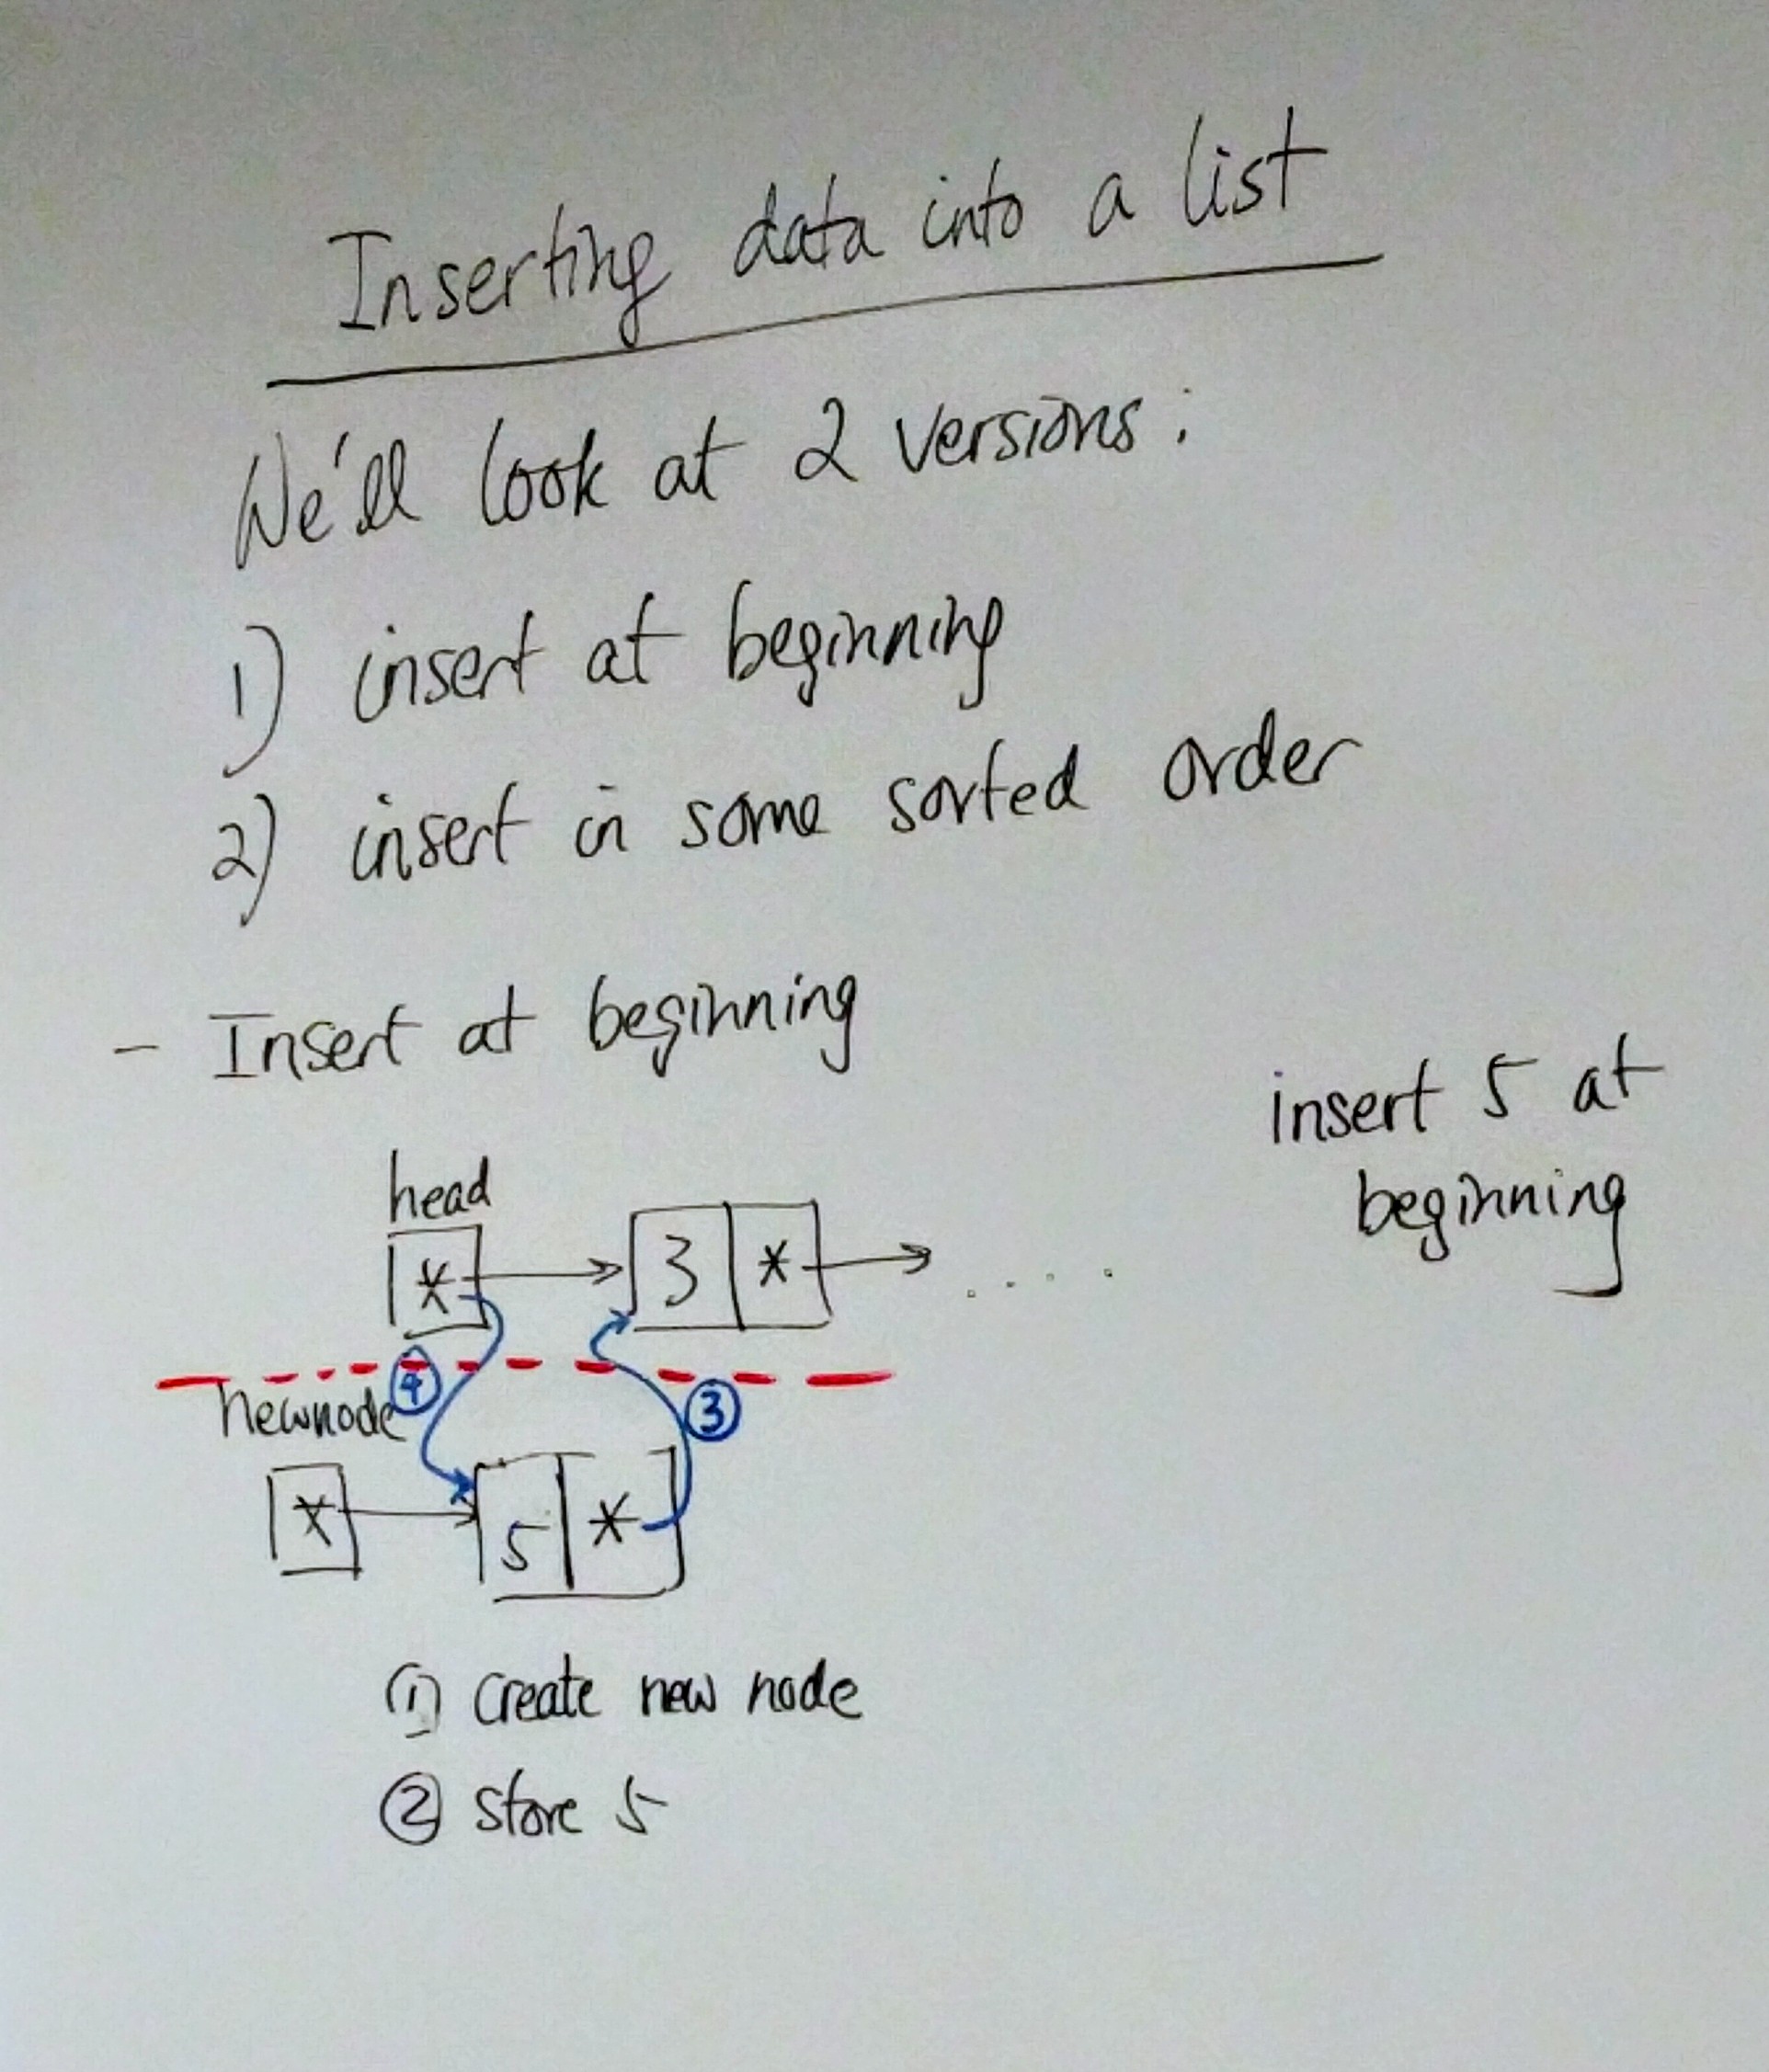 Inserting data into a list
We'll look at 2 versions:
1) insert at beginning
2) insert in some sorted order
- Insert at beginning
insert 5 at
beginning
head
* 3 * ....
newnode ④ ③
* 5 *
① create new node
② store 5